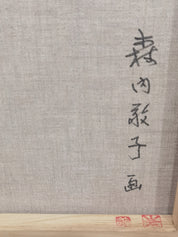 森内敬子画